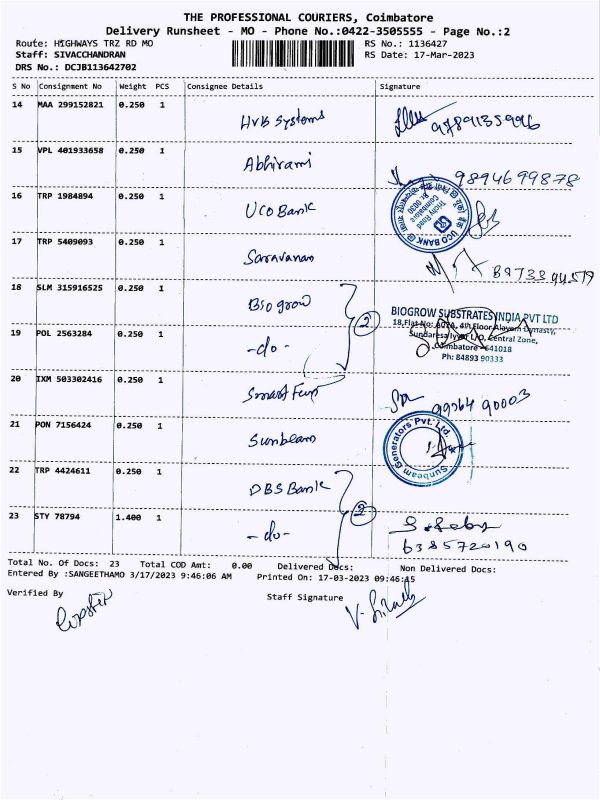 THE PROFESSIONAL COURIERS, Coimbatore
Delivery Runsheet - MO - Phone No.:0422-3505555 - Page No.:2
Route: HIGHWAYS TRZ RD MO RS No.: 1136427
Staff: SIVACCHANDRAN RS Date: 17-Mar-2023
DRS No.: DCJB113642702
S No Consignment No Weight PCS Consignee Details Signature
14 MAA 299152821 0.250 1 HVB Systems 9789135996
15 VPL 401933658 0.250 1 Abhirami 9894699878
16 TRP 1984894 0.250 1 UCO Bank
UCO BANK
Trichy Road
Coimbatore
17 TRP 5409093 0.250 1 Saravanan
18 SLM 315916525 0.250 1 Biogrow 2
BIOGROW SUBSTRATES INDIA PVT LTD
4th Floor
Central Zone,
Coimbatore - 641018
Ph: 84893 90333
19 POL 2563284 0.250 1 -do-
20 IXM 503302416 0.250 1 90003
21 PON 7156424 0.250 1 Sunbeam
Sunbeam Generators Pvt. Ltd
22 TRP 4424611 0.250 1 DBS Bank 2
23 STY 78794 1.400 1 -do- 6385720190
Total No. Of Docs: 23 Total COD Amt: 0.00 Delivered Docs: Non Delivered Docs:
Entered By :SANGEETHAMO 3/17/2023 9:46:06 AM Printed On: 17-03-2023 09:46:15
Verified By Staff Signature